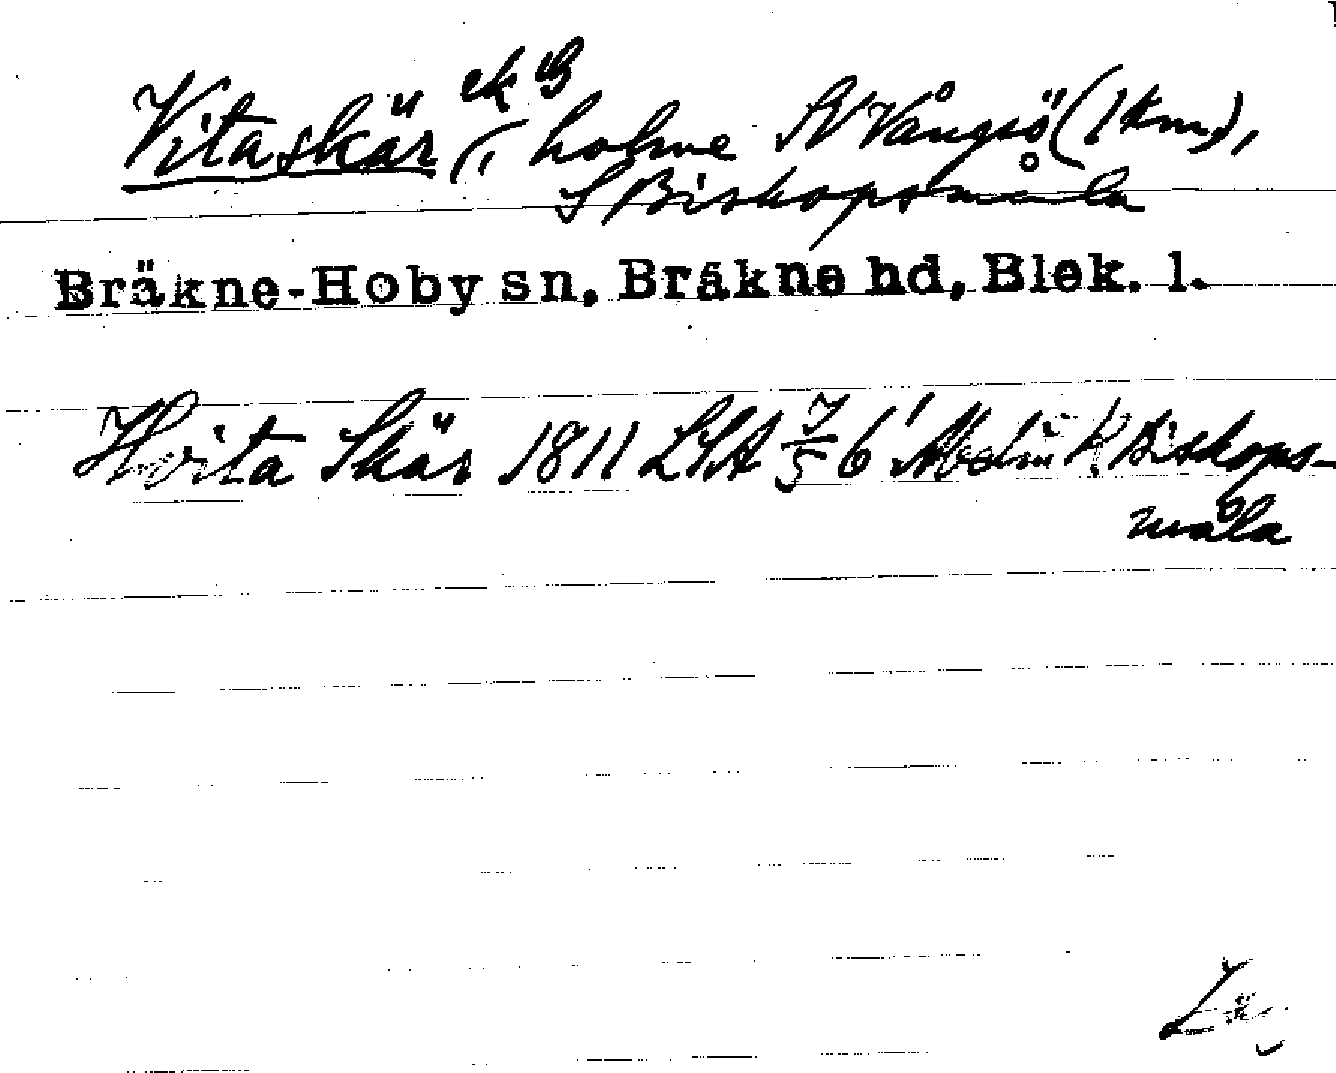 ek B
Vitaskär (, holme SV Vångsö (1 km),
S Biskopsmåla
Bräkne-Hoby sn, Bräkne hd, Blek. l.
Hvita Skär 1811 LSA 7/5 6' R Biskops-
måla